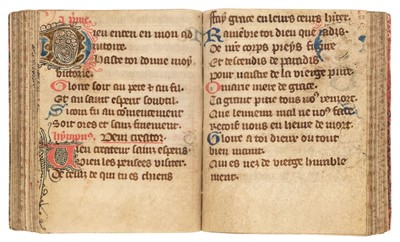 A pryme
Dieu enten en mon ad
iutoire
Haste toi donne moy
victoire
Gloire soit au pere et au fil
Et au saint esperit soubtil
Si com fu au comencement
Soit ores et sans finement
hympnus. Veni creator.
Vien createur saint espens
Vien les pensees visiter.
De ceulz de qui tu es chiens
ta grace en leurs cuers
Ramenbre toi dieu que iadis
De me corps preys
Et descendis de paradis
pour naistre de la vierge pure
marie mere de grace.
Ta grant pitie tous nos remort.
Que lennemi mal ne nos face
Recoif nous en heure de mort.
Gloire a toi dieu ou tout
bien maint.
Qui es nez de vierge humble
ment.